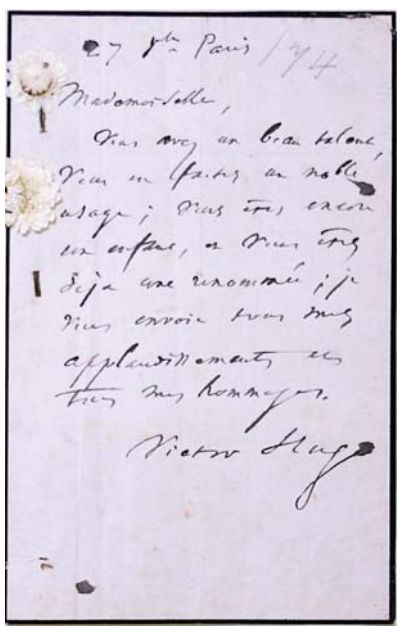 27 9bre Paris /74
Mademoiselle,
Vous avez un beau talent,
Vous en faites un noble
usage ; Vous êtes encore
un enfant, et Vous êtes
déjà une renommée ; je
vous envoie tous mes
applaudissements et
tous mes hommages.
Victor Hugo